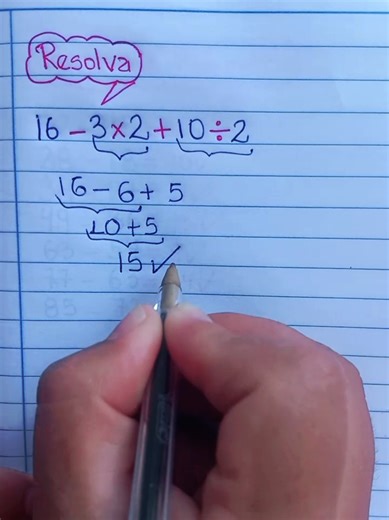 Resolva
16 - 3 × 2 + 10 ÷ 2
16 - 6 + 5
10 + 5
15 ✓